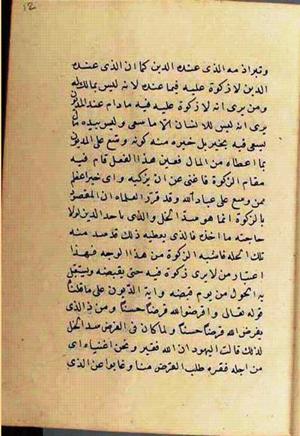 وتبرا ذمه الذى عنده الدين كما ان الذى عنده
الدين لا زكوة عليه فيما عنده لانه ليس بمالك له
ومن يرى انه لا زكوة عليه فيه ما دام عند المديون
يرى انه ليس للانسان الا ما سعى وليس بيده مال
يسعى فيه بخير بل خيره منه كونه وسع على المديون
بما اعطاه من المال فعين هذا الفعل قام فيه
مقام الزكوة فاغنى عن ان يزكيه واى خير اعظم
ممن وسع على عباد الله وقد قرر العلماء ان المقصود
بالزكوة انما هو سد الخلة والذى ياخذ الدين لولا
حاجته ما اخذ فالذى يعطيه ذلك قد سد منه
تلك الخلة فاشبه الزكوة من هذا الوجه فهذا
اعتبار من لا يرى زكوة فيه حتى يقبضه ويستقبل
به الحول من يوم قبضه واية الذهبون على ما قلناه
قوله تعالى واقرضوا الله قرضا حسنا ومن ذا الذى
يقرض الله قرضا حسنا ولما كان فى القرض سد الخلة
لذلك قالت اليهود ان الله فقير ونحن اغنياء اى
من اجل فقره طلب القرض منا وغابوا عن الذى